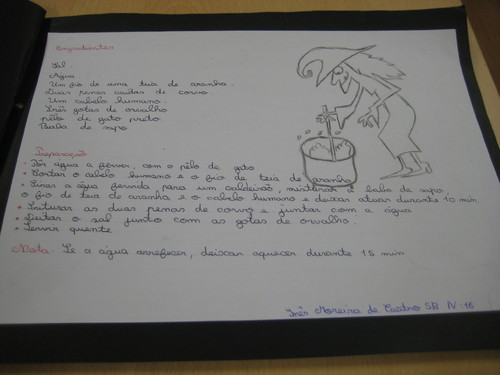 Ingredientes
Sal.
Água
Um fio de uma teia de aranha.
Duas penas caudas de corvo
Um cabelo humano.
Três gotas de orvalho
pêlo de gato preto.
Baba de sapo
Preparação
• Pôr água a ferver, com o pêlo de gato
• Cortar o cabelo humano e o fio de teia de aranha
• Tirar a água fervida para um caldeirão, misturar a baba de sapo,
o fio de teia de aranha e o cabelo humano e deixar atuar durante 10 min
• Triturar as duas penas de corvo e juntar com a água
• Deitar o sal junto com as gotas de orvalho.
• Servir quente
Nota: Se a água arrefecer, deixar aquecer durante 15 min
Inês Moreira de Castro 5B Nº 16